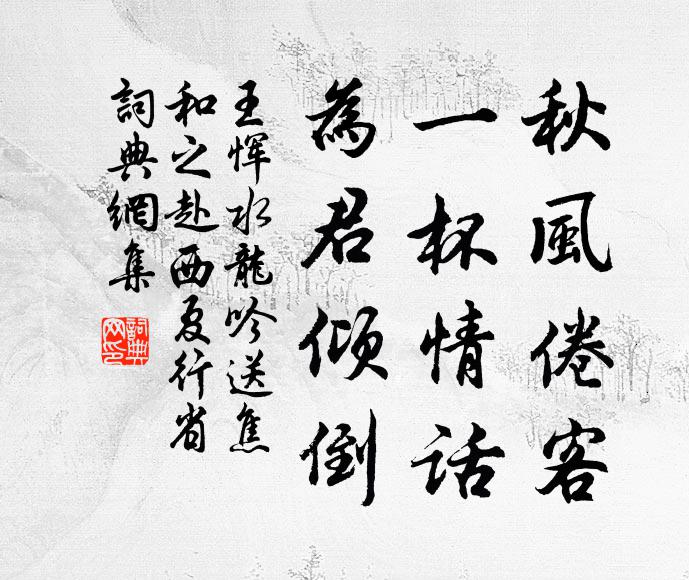 秋風倦客
一杯情话
為君傾倒
王恽水龍吟送焦
和之赴西夏行省
詞典網集
詞典
网印